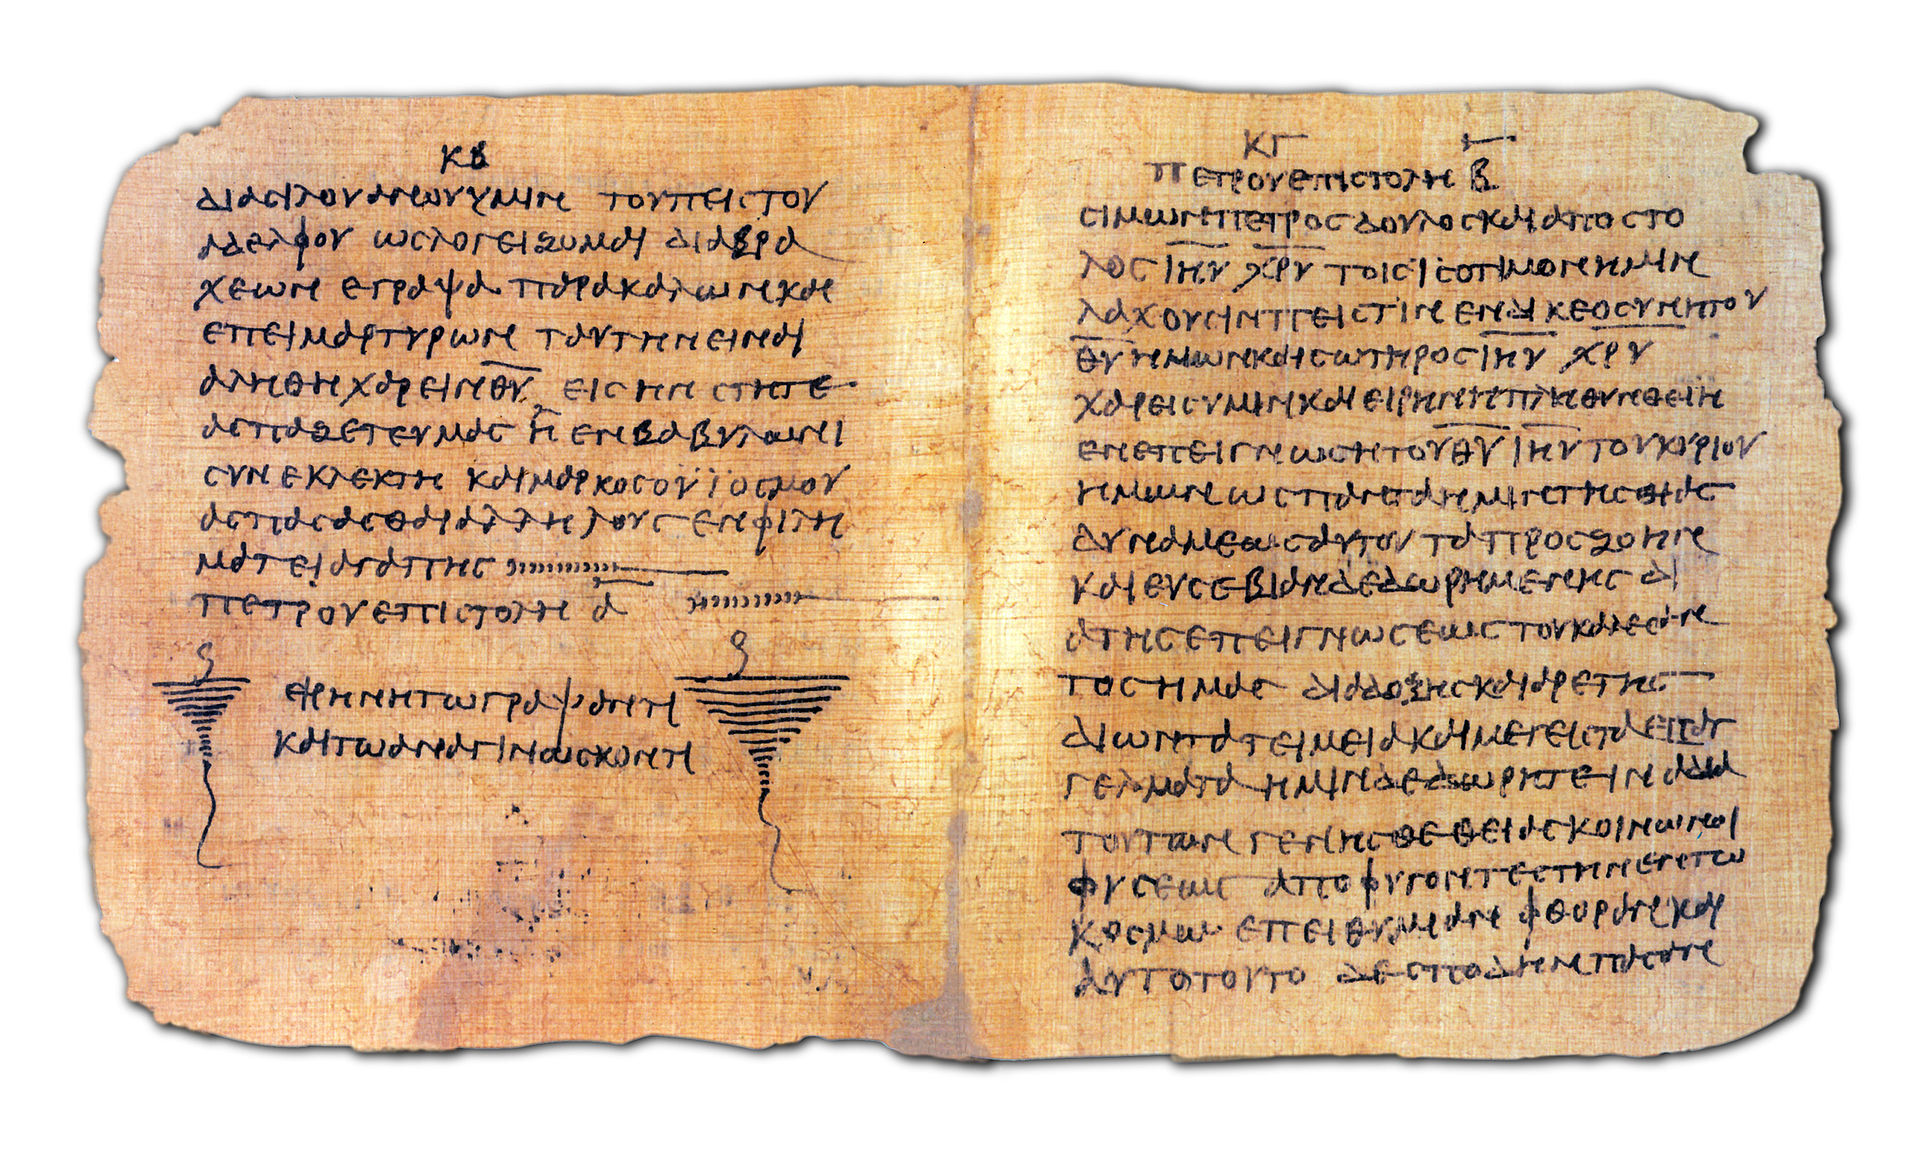 ΚΒ
ΔΙΑϹΙΛΟΥΑΝΩΥΥΜΙΝ ΤΟΥΠΕΙϹΤΟΥ
ΑΔΕΛΦΟΥ ΩϹΛΟΓΕΙΖΟΜΑΙ ΔΙΑΒΡΑ
ΧΕΩΝ ΕΓΡΑΨΑ ΠΑΡΑΚΑΛΩΝΚΑΙ
ΕΠΕΙΜΑΡΤΥΡΩΝ ΤΑΥΤΗΝΕΙΝΑΙ
ΑΛΗΘΗΧΑΡΕΙΝΘ̅Υ̅ ΕΙϹ ΗΝ ϹΤΗΤΕ
ΑϹΠΑΖΕΤΕΥΜΑϹ Η ΕΝΒΑΒΥΛΩΝΙ
ϹΥΝΕΚΛΕΚΤΗ ΚΑΙΜΑΡΚΟϹΟΥΪΟϹΜΟΥ
ΑϹΠΑϹΑϹΘΑΙΑΛΛΗΛΟΥϹ ΕΝΦΙΛΗ
ΜΑΤΕΙΑΓΑΠΗϹ
ΠΕΤΡΟΥΕΠΙϹΤΟΛΗ Α̅
ΕΙΡΗΝΗΤΩΓΡΑΨΑΝΤΙ
ΚΑΙΤΩΑΝΑΓΙΝΩϹΚΟΝΤΙ
ΚΓ
ΠΕΤΡΟΥΕΠΙϹΤΟΛΗ Β̅
ϹΙΜΩΝΠΕΤΡΟϹΔΟΥΛΟϹΚΑΙΑΠΟϹΤΟ
ΛΟϹ Ι̅Η̅Υ̅ Χ̅Ρ̅Υ̅ ΤΟΙϹ ΙϹΟΤΙΜΟΝΗΜΙΝ
ΛΑΧΟΥϹΙΝΠΕΙϹΤΙΝ ΕΝΔΙΚΕΟϹΥΝΗΤΟΥ
Θ̅Υ̅ ΗΜΩΝΚΑΙϹΩΤΗΡΟϹ Ι̅Η̅Υ̅ Χ̅Ρ̅Υ̅
ΧΑΡΕΙϹΥΜΙΝΚΑΙΕΙΡΗΝΗΠΛΗΘΥΝΘΕΙΗ
ΕΝΕΠΕΙΓΝΩϹΗΤΟΥΘ̅Υ̅ Ι̅Η̅Υ̅ ΤΟΥΚΥΡΙΟΥ
ΗΜΩΝ ΩϹΠΑΝΤΑΗΜΙΝΤΗϹΘΙΑϹ
ΔΥΝΑΜΕΩϹΑΥΤΟΥ ΤΑΠΡΟϹΖΟΗΝ
ΚΑΙΕΥϹΕΒΙΑΝΔΕΔΩΡΗΜΕΝΗϹ ΔΙ
ΑΤΗϹΕΠΕΙΓΝΩϹΕΩϹΤΟΥΚΑΛΕϹΑΝ
ΤΟϹ ΗΜΑϹ ΔΙΑΔΟΞΗϹΚΑΙΑΡΕΤΗϹ
ΔΙΩΝΤΑΤΕΙΜΕΙΑΚΑΙΜΕΓΕΙϹΤΑΕΠΑΓ
ΓΕΛΜΑΤΑ ΗΜΙΝΔΕΔΩΡΗΤΕΙΝΑΔΙΑ
ΤΟΥΤΩΝ ΓΕΝΗϹΘΕΘΕΙΑϹΚΟΙΝΩΝΟΙ
ΦΥϹΕΩϹ ΑΠΟΦΥΓΟΝΤΕϹΤΗΝΕΝΤΩ
ΚΟϹΜΩ ΕΠΕΙΘΥΜΙΑΝ ΦΘΟΡΑΝΚΑΙ
ΑΥΤΟΤΟΥΤΟ ΔΕϹΠΟΔΗΝΠΑϹΑΝ